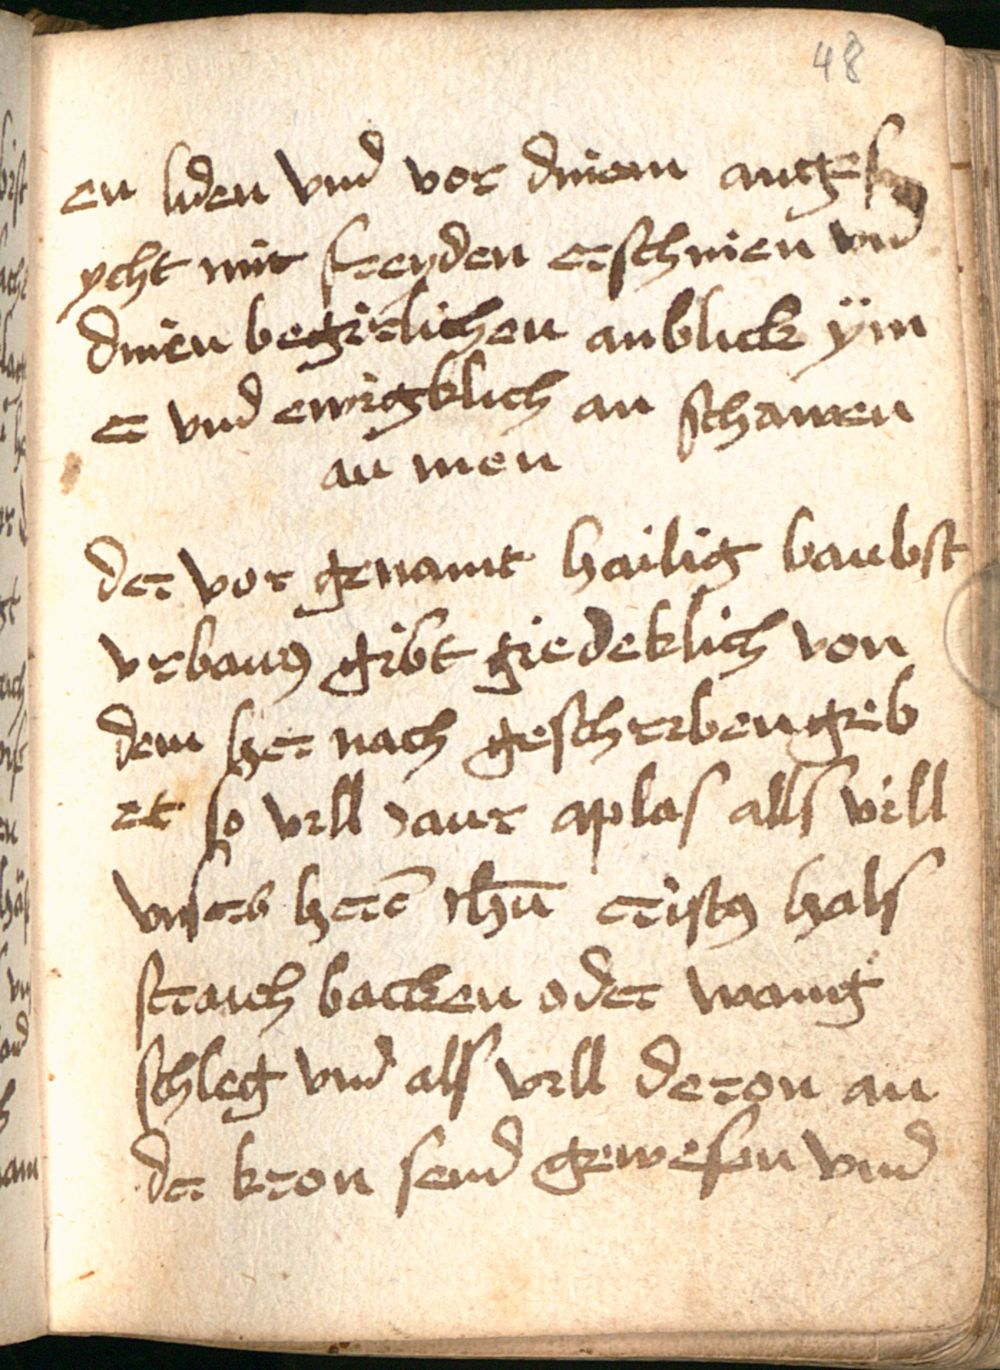 48
en liden vnd vor dinem anges
ycht mit freyden erschinen vnd
dinen begirlichen anblick ÿm
er vnd ewigklich an schawen
amen
der vor genamt hailig baubst
vrbanus gibt giedeklich von
dem her nach geschrben geb
et so vill iaur aplas alls vill
vnsers heren ihū cristus hals
straich backen oder wang
schleg vnd als vill deron an
der kron send gewesen vnd